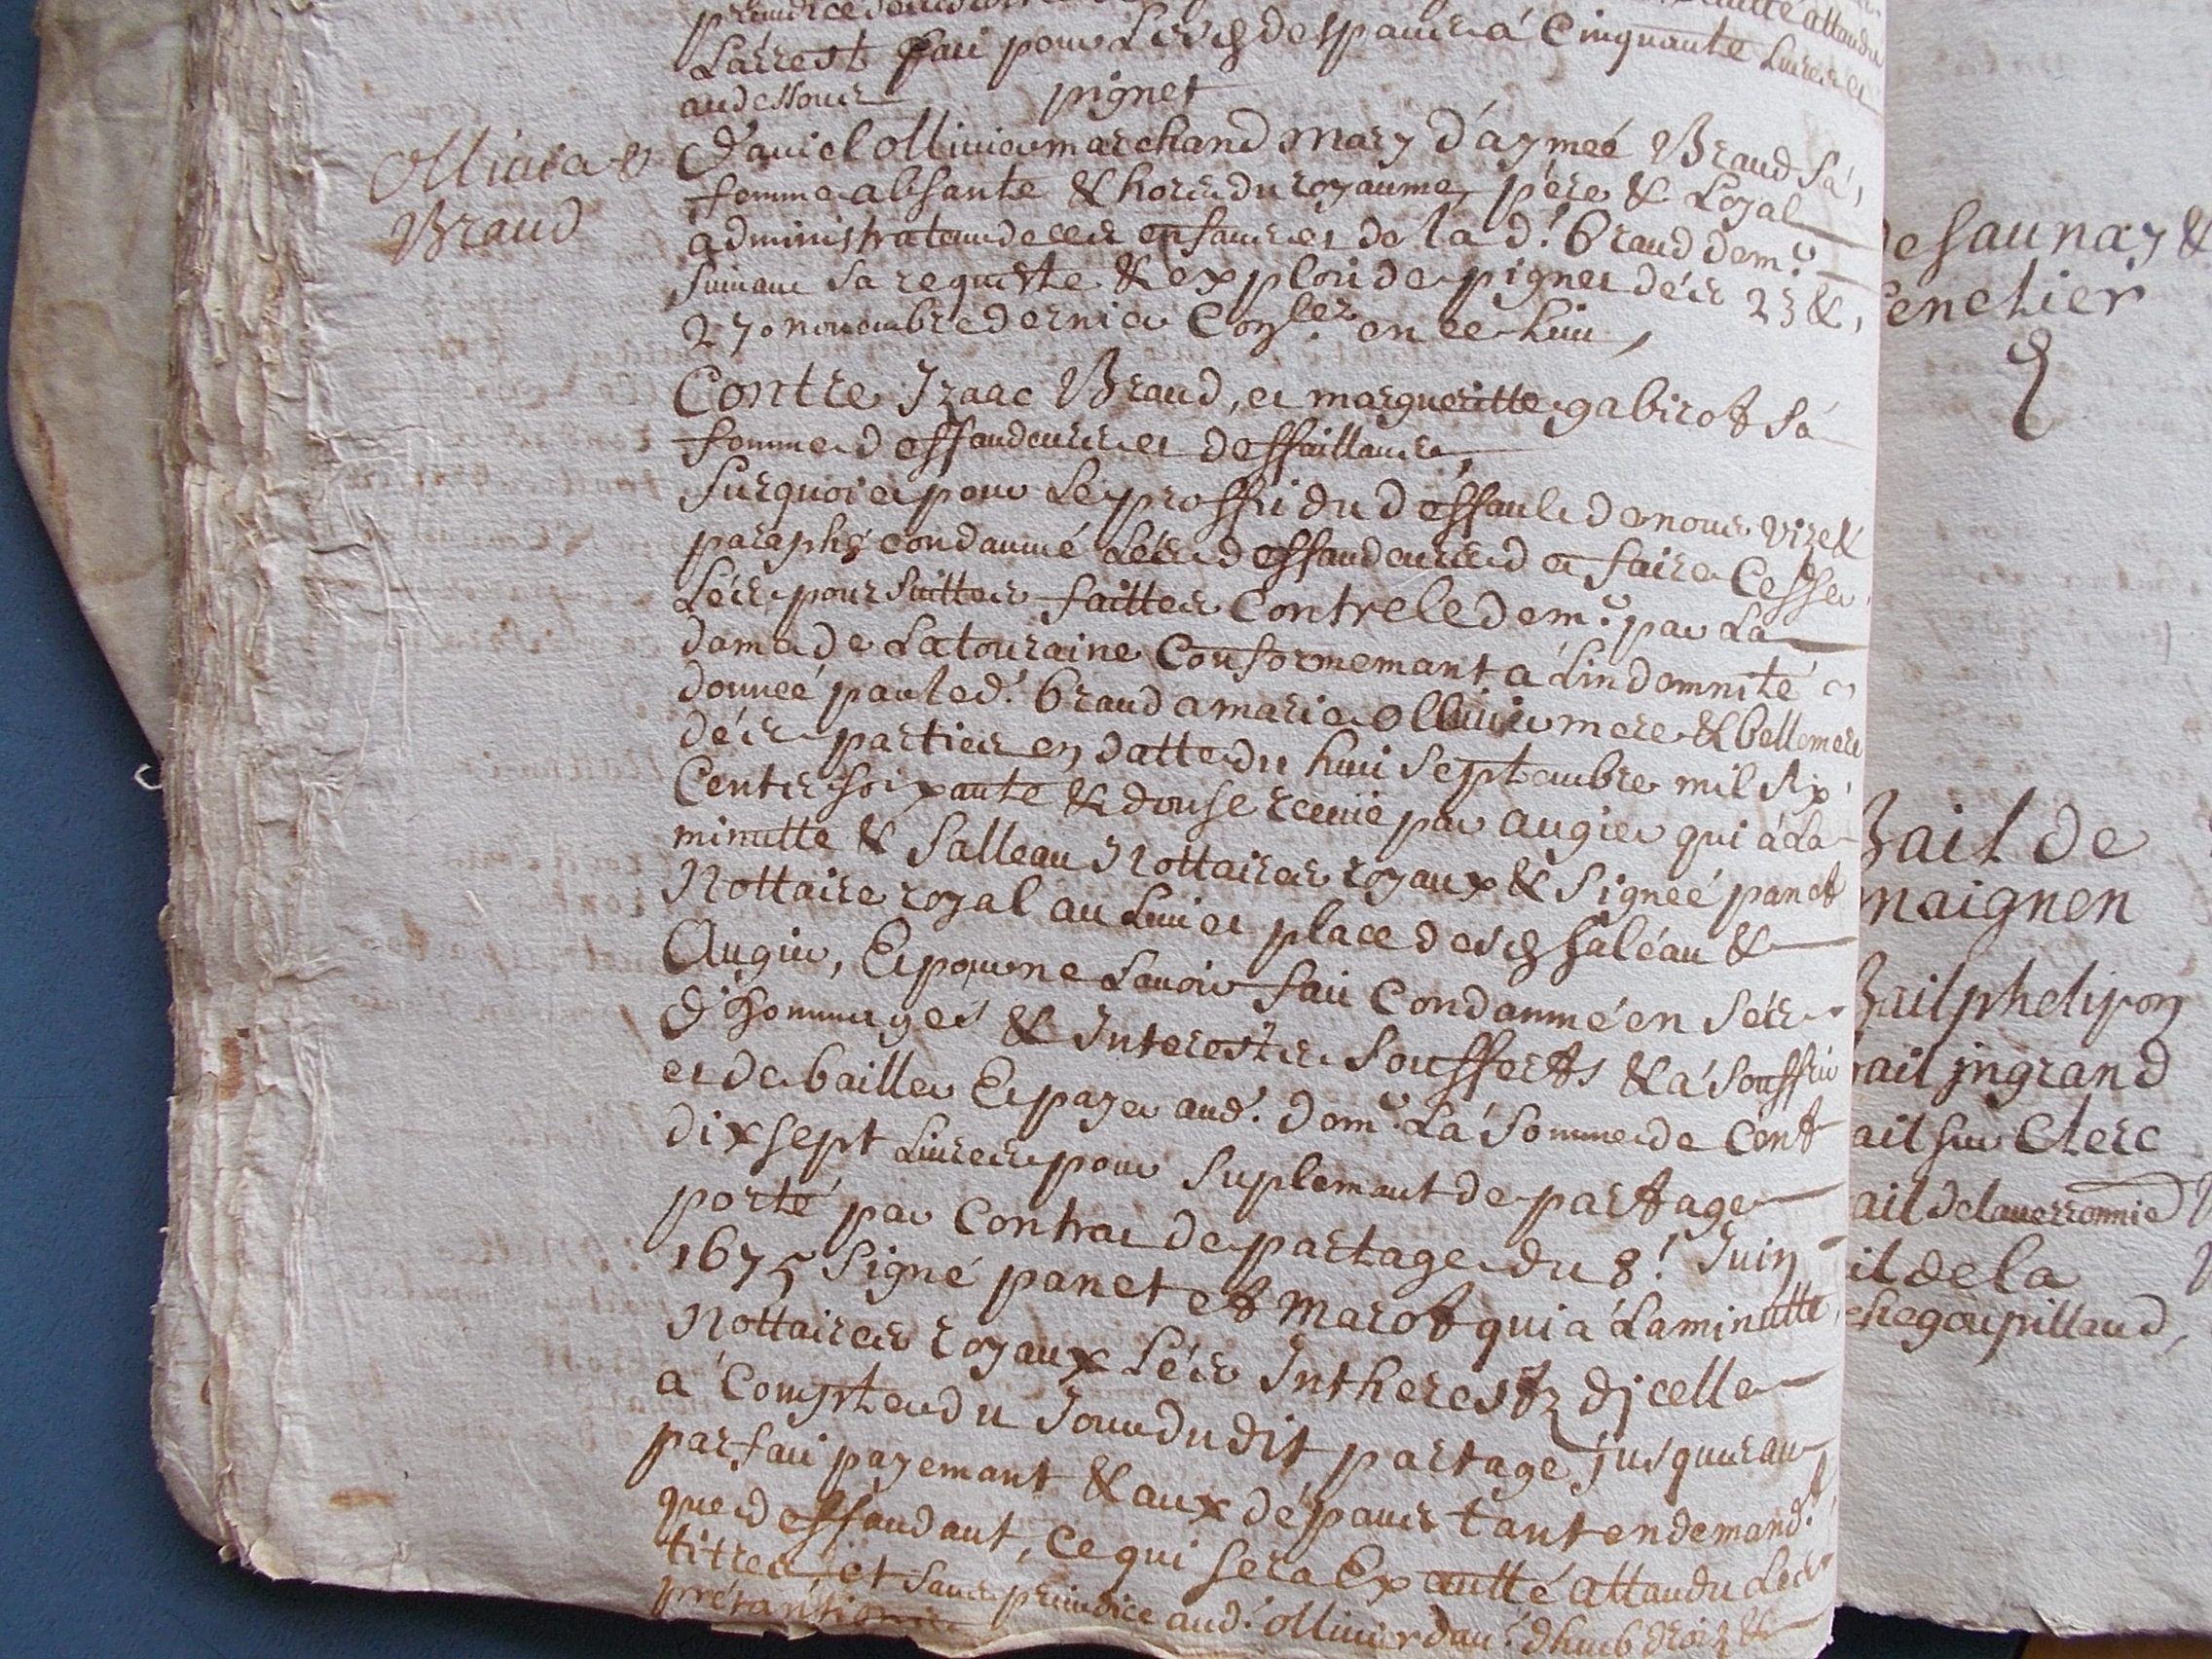 Larrest fait pour Lesd despans a Cinquante Livres et
audessous pignet
Ollivier &
Braud
Daniel Ollivier marchand mary d'aymeé Braud sa
femme absante & hors du royaume, pére & Loyal
administrateur de ces enfans et de la d.t braud dem.r
suivant sa requeste & exploit de pignet dés 23 &
27e novembre dernier en ce lieu,
Contre Izaac Braud, et margueritte gabirot sa
femme deffandeurs et deffaillans,
Surquoi et pour Le proffit du deffault de nous vizé &
paraphé condamné Lésd deffandeurs de faire Cesser
Lés poursuittes faittes Contre le dem.r par La
dame de Latouraine Conformemant a Lindemnité
donneé par led.t braud a marie Ollivier mere & bellemere
dés parties en datte du huit septembre mil six
Cents soixante & douse receuë par augier qui a La
minutte & Salleau Nottaires royaux & Signeé panet
Nottaire royal au Lieu et place desd Saléau &
Augier, Et pour ne Lavoir fait Condamné en sés
dhommages & Interestz soufferts & a souffrir
et de bailler Et payer aud.t dem.r La somme de Cent
dix sept Livres pour suplemant de partage
porté par Contrat de partage du 8.e Juin
1675 Signé panet et marot qui a Laminutte
Nottaires royaux Lés Intherestz dicelle
a Compter du Jour dudit partage jusques au
parfait payemant & aux dépans tant en demand.t
que deffandant, Ce qui sera Exécutté attandu Les
titres et sans préiudice aud.t ollivier dau.t droitz &
prétantions
desaunay &
Bail de
maignen
Bail phelipon
ail jngrand
ail sur Clerc
ail de la